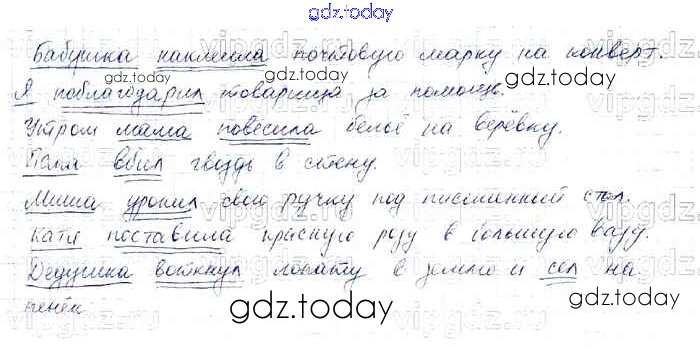 gdz.today
Бабушка наклеила почтовую марку на конверт.
gdz.today gdz.today
Я поблагодарил товарища за помощь.
Утром мама повесила бельё на верёвку.
Папа вбил гвоздь в стену.
Миша уронил свою ручку под письменный стол.
Катя поставила красную розу в большую вазу.
Дедушка воткнул лопату в землю и сел на
пенёк
gdz.today gdz.today